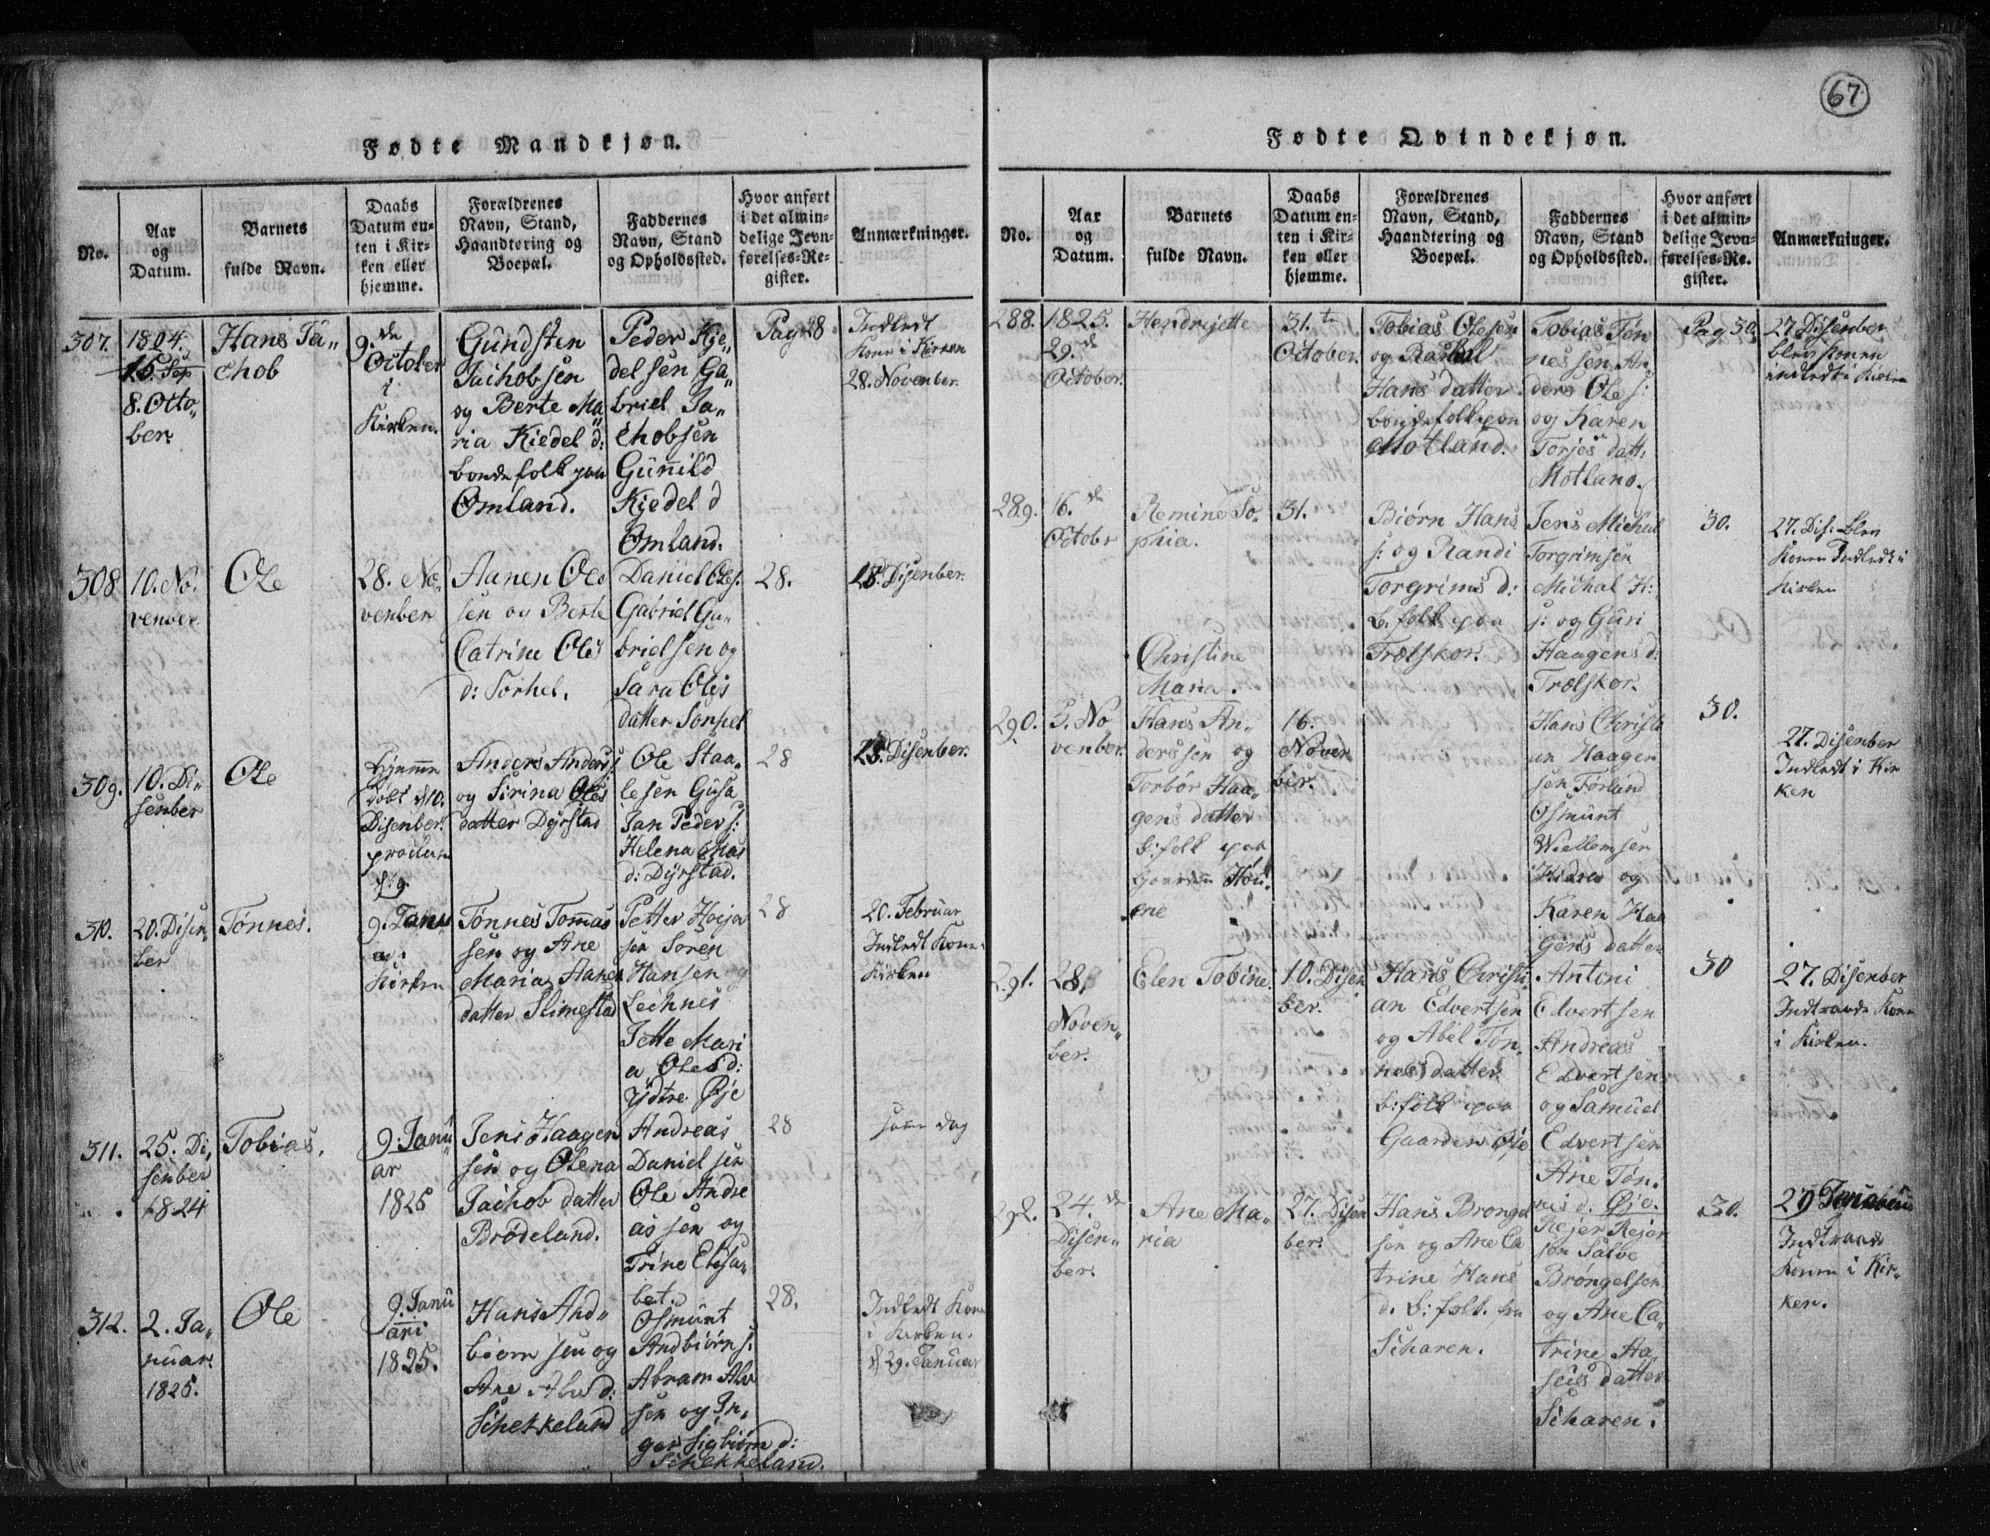 67.
Fødte Mandkjøn.
No.
Aar
og
Datum.
Barnets
fulde Navn.
Daabs
Datum en-
ten i Kir-
ken eller
hjemme.
Forældrenes
Navn, Stand,
Haandtering og
Boepæl.
Faddernes
Navn, Stand
og Opholdssted.
Hvor anført
i det almin-
delige Jevn-
førelses-Re-
gister.
Anmærkninger.
307.
1804.
15. Sep
8. Octo„
ber.
Hans Ja„
chob
9.de
October
i
Kirken.
Gundsten
Jachobsen
og Berte Ma
ria Kiedel d:
bondefolk paa
Omland.
Peder Kje„
delsen Ga„
briel Ja„
chobsen
Gunild
Kjedel d
Omland.
Pag 28
Indledt
Kone i Kirken
28. November.
308
10. No„
venber.
Ole
28. No„
venber
Aanen Ole
sen og Berte
Catrine Oles
d: Torhel.
Daniel Oles:
Gabriel Ga„
brielsen og
Sara Oles
datter
28.
18. Disenber.
309.
10. Di„
senber
Ole
Hjemme
Døbt d 10.
Disenber.
Anders Anders:
og Sirina Oles
datter Dyrstad
Ole Staa„
lesen Gusa
Jan Peder s:
Helena
d: Dyrstad.
28
25. Disenber.
310.
20. Disen„
ber
Tønnes.
9. Janu
a.
Kirken
Tønnes Tomas
sen og Ane
Maria Aanen
datter Slimestad
Petter Hoija
sen Soren
Hansen
Lechnes
Jette Mari
a Oles d:
Ydtre Øje
28
20. Februar
Indledt Kone
Kirken
311.
25. Di„
senber
1824
Tobias.
9. Janu
ar
1825
Jens Haagen
sen og Olena
Jachob datter
Brødeland.
Andreas
Daniel sen
Ole Andre
as sen og
Trine Elisa„
bet.
28
samme dag
312.
2. Ja„
nuar.
1825.
Ole
9. Janu
ari
1825.
Hans And„
biørn sen og
Ane d:
Schekkeland
Osmunt
Andbiørn s:
Abram
sen og In„
ger Sigbiørn d:
Schekkeland.
28.
Indledt Kone
i Kirken.
d 29. Januar
Fødte Qvindekjøn.
No.
Aar
og
Datum.
Barnets
fulde Navn.
Daabs
Datum en-
ten i Kir-
ken eller
hjemme.
Forældrenes
Navn, Stand,
Haandtering og
Boepæl.
Faddernes
Navn, Stand
og Opholdssted.
Hvor anført
i det almin-
delige Jevn-
førelses-Re-
gister.
Anmærkninger.
288.
1825.
29.de
October.
Hendrijette
31.t
October.
Tobias Olesen
og Rachel
Hans datter
bondefolk paa
Motland.
Tobias Tøn
nessen An
ders Ole s:
og Karen
Torjes datt.
Motland.
Pag 30.
27. Disenber
blev Konen
indledt i Kirken
289.
16.de
Octobr
Remine So„
phia.
31.
Biørn Hans
s: og Randi
Torgrims d:
b. folk paa
Trælskor.
Jens Michal
Torgrimsen
Michal H:
s: og Guri
Haagens d:
Trælskor.
30.
27. Dis: blev
Konen Indledt i
Kirken
290.
5. No
venber.
Christine
Maria.
16.
Noven
ber.
Hans An„
derssen og
Torbør Haa„
gens datter
b: folk paa
Gaarden
Hans Christi
an Haagen
sen Førland
Osmunt
Wiellemsen
Hidra og
Karen Haa
gens datter
30.
27. Disenber
Indledt i Kir
ken
291.
28.
Noven„
ber.
Elen Tobine.
10. Disen
ber.
Hans Christi
an Edvertsen
og Abel Tøn„
nes datter
b: folk paa
Gaarden Øje
Antoni
Edvertsen
Andreas
Edvertsen
og Samuel
Edvertsen
Ane Tøn„
nes d. Øje.
30
27. Disenber
Indtraade Kone
i Kirken.
292.
24.de
Disen„
ber.
Ane Ma„
ria
27. Disen
ber.
Hans Brongel
sen og Ane Ca
trine Hans
d. b: folk. fra
Scharen.
Rejer Rejer
sen Salve
Brøngelsen
og Ane Ca„
trine Aa„
datter
Scharen.
30.
29
Indtraade
Konen i Kir„
ken.